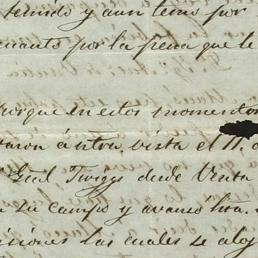 tenido y aun temo por
cuanto por la pena que le
Porque en estos momentos
varon á ntra. vista el 11. d
Gral Twiggs desde Venta
a su campo y avanso hta.
isiones las cuales se aloj